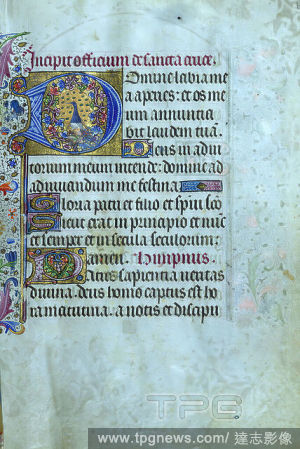 Incipit officium de sancta cruce.
Domine labia me
a aperies: et os me
um annuncia
bit laudem tuā.
Deus in adiu
torium meum intende: domine ad
adiuvandum me festina
Gloria patri et filio et spiui sco
Sicut erat in principio et nūc
et semper et in secula seculorum:
amen. Himpnus.
Patris sapientia veritas
divina. deus homo captus est ho
ra matutina. a notis et discipu
TPG
www.tpgnews.com/ 達志影像